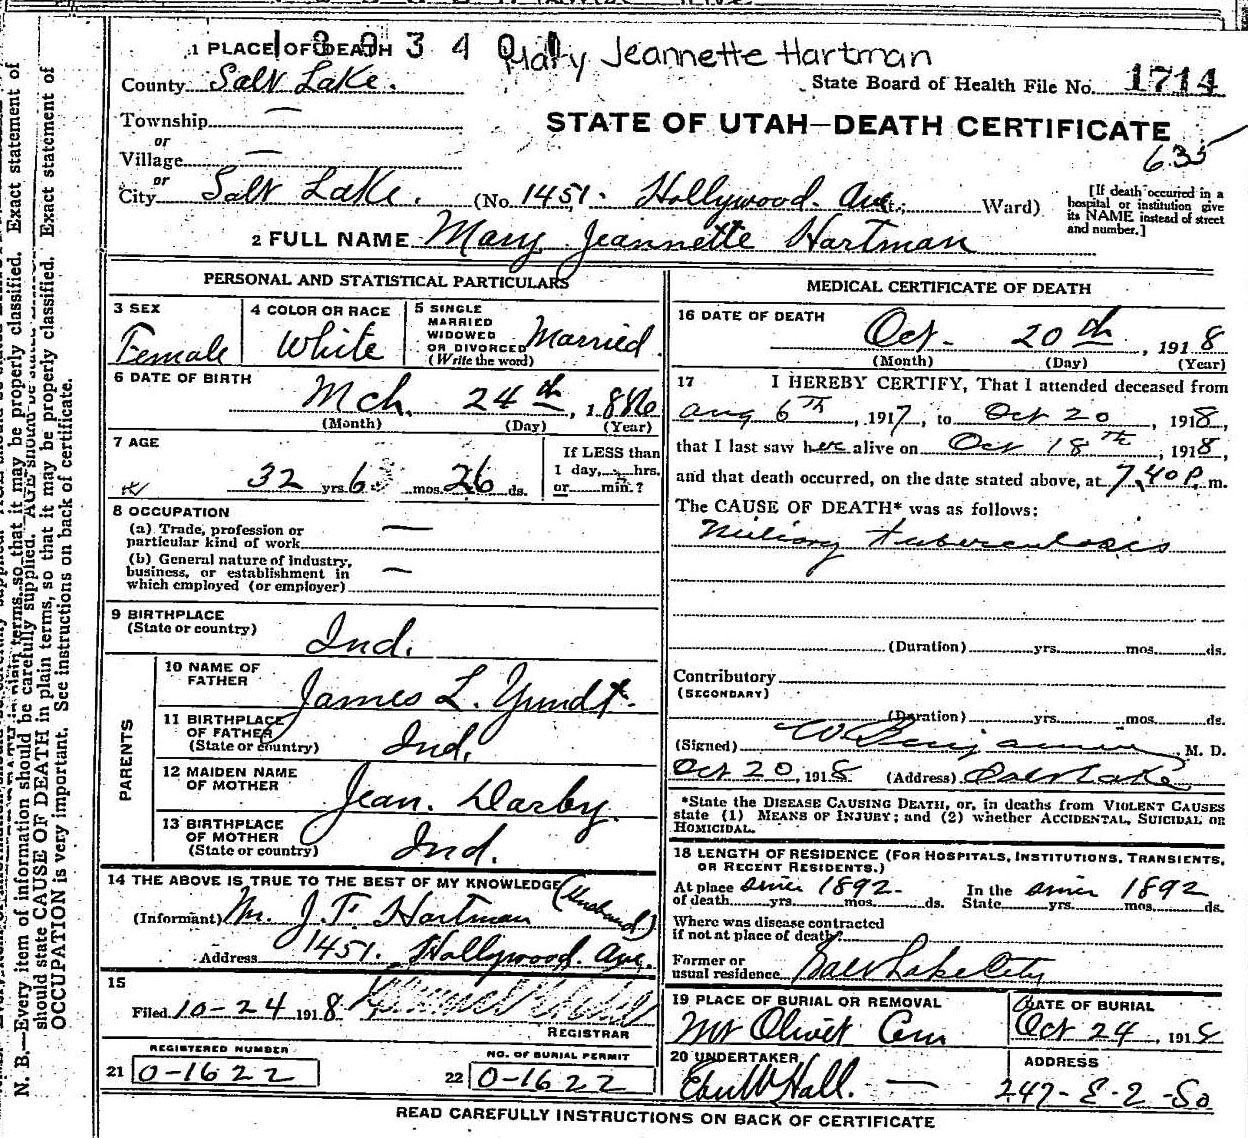 1 PLACE OF DEATH 3 4 Mary Jeannette Hartman
County Salt Lake. State Board of Health File No. 1714
Township —
or
STATE OF UTAH—DEATH CERTIFICATE
Village — 635
or
City Salt Lake. (No. 1451. Hollywood. Ave St.; Ward)
[If death occurred in a
hospital or institution give
its NAME instead of street
and number.]
2 FULL NAME Mary Jeannette Hartman
PERSONAL AND STATISTICAL PARTICULARS
3 SEX
Female
4 COLOR OR RACE
White
5 SINGLE
MARRIED
WIDOWED
OR DIVORCED
(Write the word)
Married.
6 DATE OF BIRTH
Mch. 24th, 1886
(Month) (Day) (Year)
7 AGE
32 yrs. 6 mos. 26 ds.
If LESS than
1 day, hrs.
or min.?
8 OCCUPATION
(a) Trade, profession or
particular kind of work —
(b) General nature of industry,
business, or establishment in
which employed (or employer) —
9 BIRTHPLACE
(State or country) Ind.
PARENTS
10 NAME OF
FATHER James L. Yundt.
11 BIRTHPLACE
OF FATHER
(State or country) Ind.
12 MAIDEN NAME
OF MOTHER Jean. Darby.
13 BIRTHPLACE
OF MOTHER
(State or country) Ind.
14 THE ABOVE IS TRUE TO THE BEST OF MY KNOWLEDGE
(Informant) M. J. T. Hartman (Husband)
Address 1451. Hollywood. Ave.
15
Filed 10-24 1918
REGISTRAR
REGISTERED NUMBER
21 0-1622
NO. OF BURIAL PERMIT
22 0-1622
MEDICAL CERTIFICATE OF DEATH
16 DATE OF DEATH
Oct. 20th, 1918
(Month) (Day) (Year)
17 I HEREBY CERTIFY, That I attended deceased from
Aug 6th, 1917, to Oct 20, 1918,
that I last saw her alive on Oct 18th, 1918,
and that death occurred, on the date stated above, at 7,40 P. m.
The CAUSE OF DEATH* was as follows:
Miliary tuberculosis
(Duration) yrs. mos. ds.
Contributory
(SECONDARY)
(Duration) yrs. mos. ds.
(Signed) W Benjamin, M. D.
Oct 20, 1918 (Address) Salt Lake
*State the DISEASE CAUSING DEATH, or, in deaths from VIOLENT CAUSES
state (1) MEANS OF INJURY; and (2) whether ACCIDENTAL, SUICIDAL OR
HOMICIDAL.
18 LENGTH OF RESIDENCE (FOR HOSPITALS, INSTITUTIONS, TRANSIENTS,
OR RECENT RESIDENTS.)
At place since 1892- In the since 1892
of death yrs. mos. ds. State yrs. mos. ds.
Where was disease contracted
if not at place of death?
Former or
usual residence Salt Lake City
19 PLACE OF BURIAL OR REMOVAL
Mt Olivet Cem
DATE OF BURIAL
Oct 24, 1918
20 UNDERTAKER
Eber W Hall. —
ADDRESS
247-E-2-So
READ CAREFULLY INSTRUCTIONS ON BACK OF CERTIFICATE
N. B.—Every item of information should be carefully supplied. AGE should be
should state CAUSE OF DEATH in plain terms, so that it may be properly classified. Exact statement of
OCCUPATION is very important. See instructions on back of certificate.